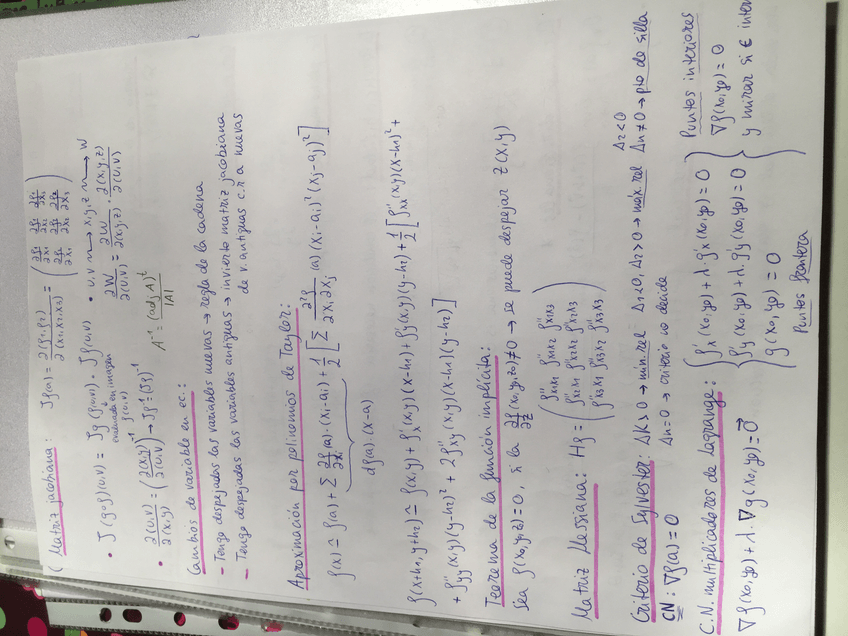 ( Matriz jacobiana : Jf(a) = ∂(f₁,f₂)/∂(x₁,x₂,x₃) = (∂f₁/∂x₁ ∂f₁/∂x₂ ∂f₁/∂x₃ ; ∂f₂/∂x₁ ∂f₂/∂x₂ ∂f₂/∂x₃)
• J (g∘f)(u,v) = Jg (f(u,v)) · Jf(u,v) • u,v ⟶ x,y,z ⟶ w
evaluada en imagen f(u,v)
∂w/∂(u,v) = ∂w/∂(x,y,z) · ∂(x,y,z)/∂(u,v)
• ∂(u,v)/∂(x,y) = (∂(x,y)/∂(u,v))⁻¹ → Jf⁻¹ = (Jf)⁻¹ A⁻¹ = (adj A)ᵗ/|A|
Cambios de variable en ec.:
- Tengo despejadas las variables nuevas → regla de la cadena
- Tengo despejadas las variables antiguas → invierto matriz jacobiana
de v. antiguas c.r a nuevas
Aproximación por polinomios de Taylor:
f(x) ≃ f(a) + Σ ∂f/∂xi (a)·(xi-ai) + 1/2 [Σ ∂²f/∂xi ∂xj (a) (xi-ai)² (xj-aj)²]
df(a)·(x-a)
f(x+h₁,y+h₂) ≃ f(x,y) + f'x (x,y)(x-h₁) + f'y(x,y)(y-h₂) + 1/2 [f''xx (x,y)(x-h₁)² +
+ f''yy (x,y)(y-h₂)² + 2f''xy (x,y)(x-h₁)(y-h₂)]
Teorema de la función implícita:
Sea f(x₀,y,z)=0, si la ∂f/∂z (x₀,y₀,z₀)≠0 → se puede despejar z(x,y)
Matriz Hessiana: Hf = (f''x₁x₁ f''x₁x₂ f''x₁x₃ ; f''x₂x₁ f''x₂x₂ f''x₂x₃ ; f''x₃x₁ f''x₃x₂ f''x₃x₃)
Criterio de Sylvester: ΔK>0 → mín.rel Δ₁<0, Δ₂>0 → máx.rel Δn≠0 → pto de silla
Δ₂<0
CN : ∇f(a) = 0 Δn=0 → criterio no decide
C.N. multiplicadores de Lagrange:
∇f(x₀,y₀) + λ·∇g(x₀,y₀) = 0⃗
f'x (x₀,y₀) + λ·g'x (x₀,y₀) = 0
f'y (x₀,y₀) + λ·g'y (x₀,y₀) = 0
g(x₀,y₀) = 0
Puntos frontera
Puntos interiores
∇f(x₀,y₀) = 0
y mirar si ∈ inter